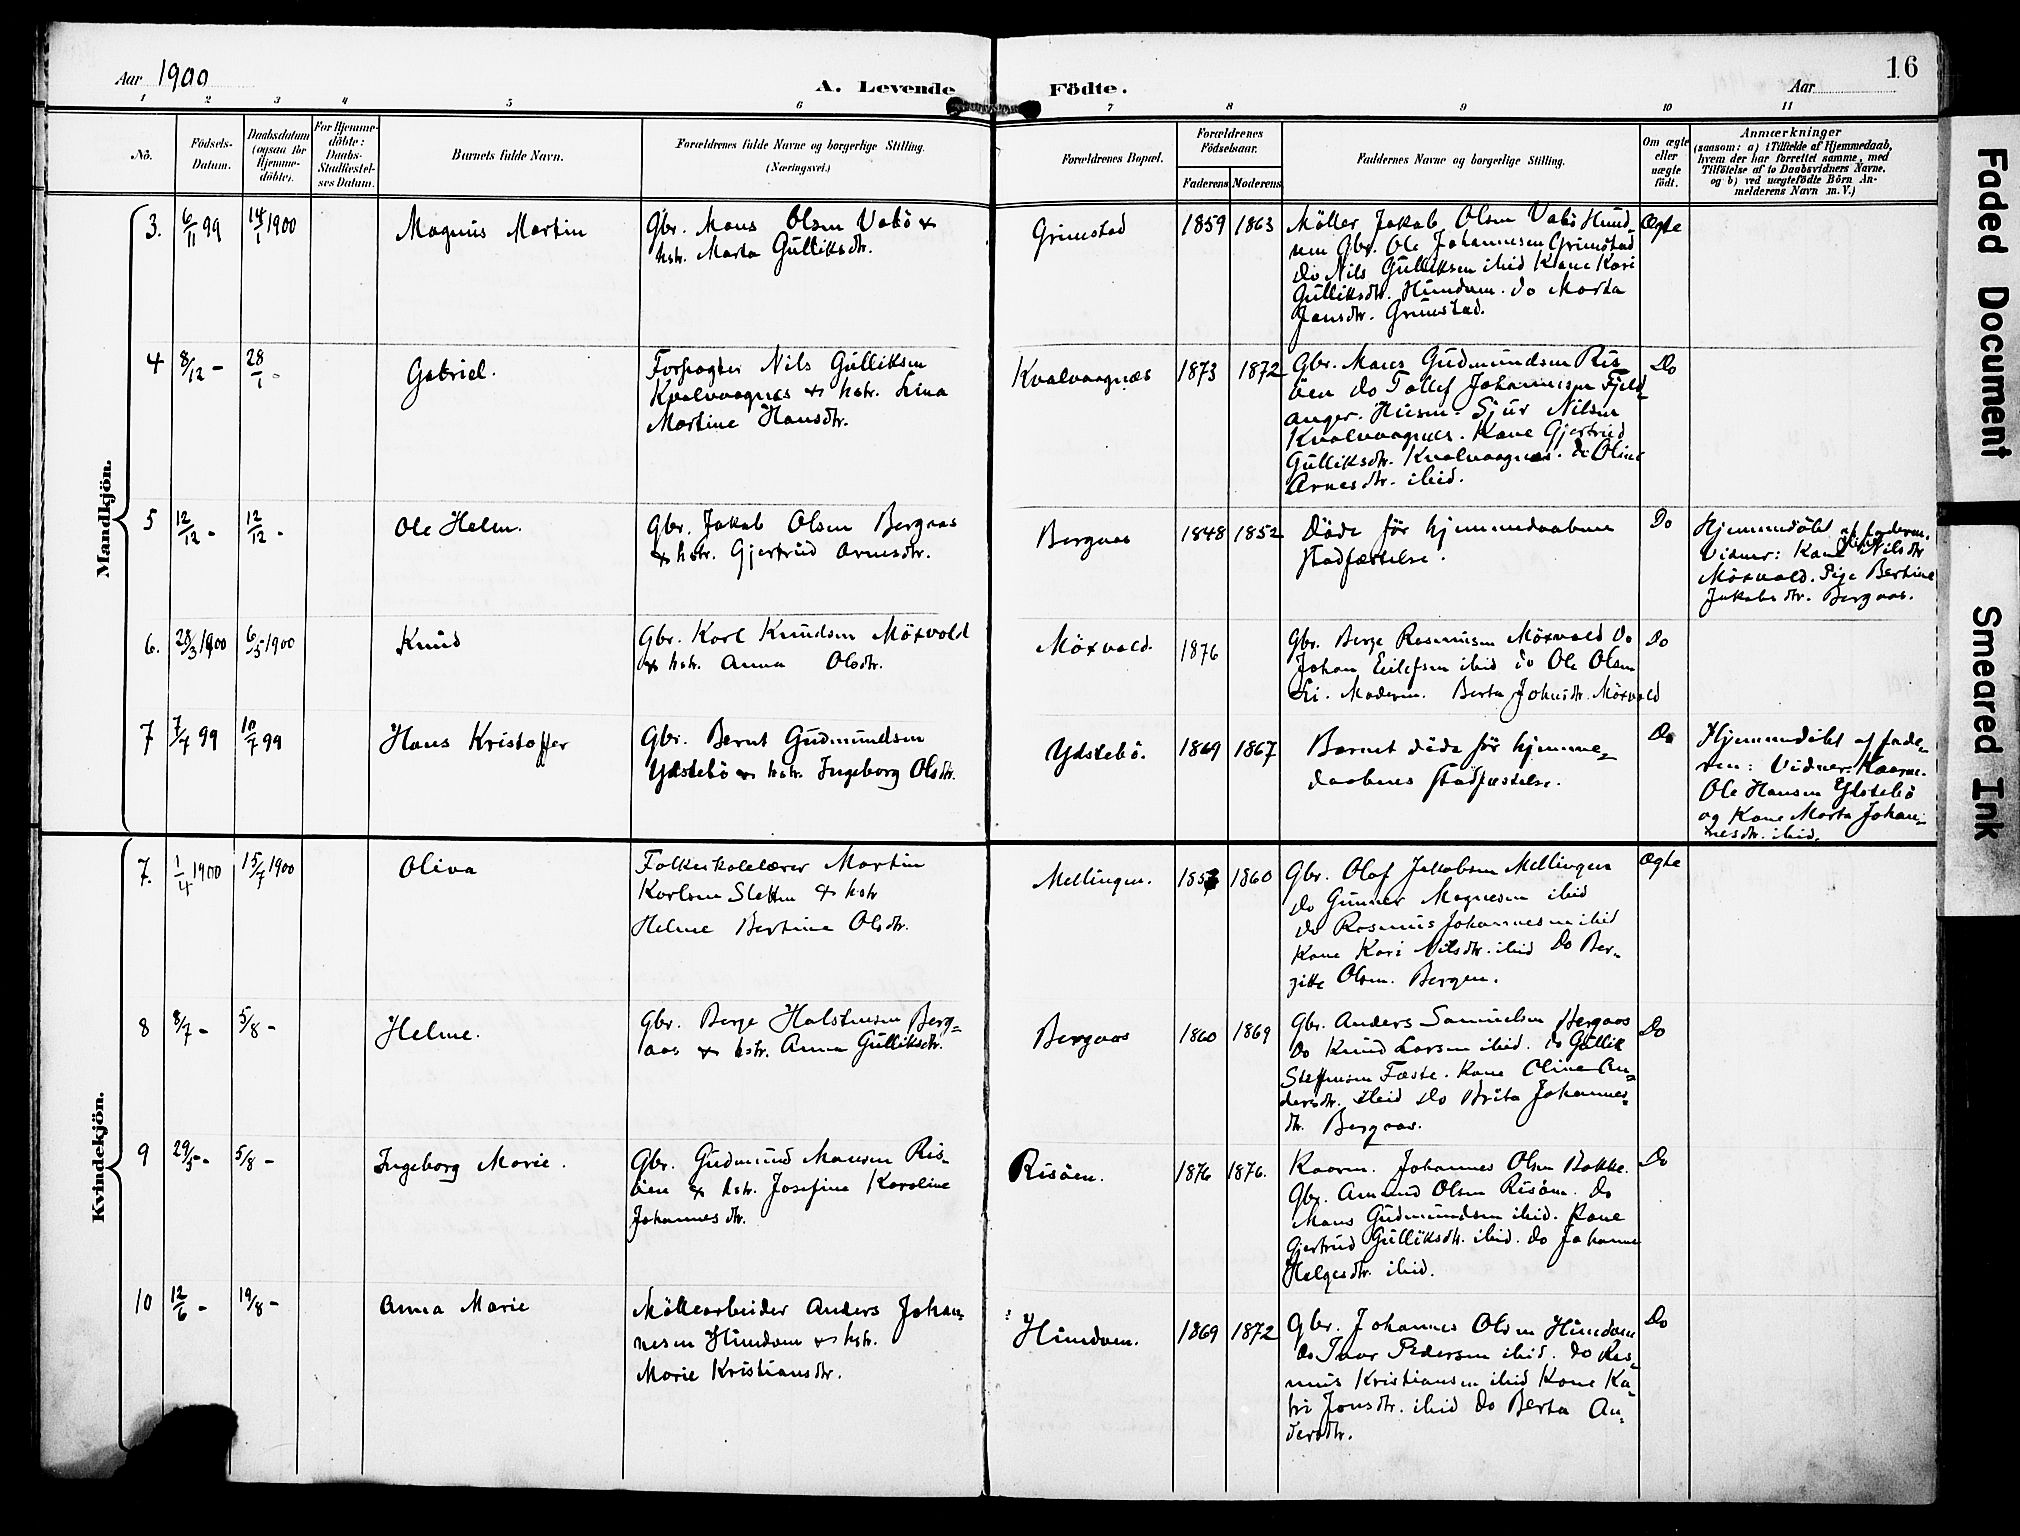 16
Aar 1900
A. Levende Födte.
Aar
1 2 3 4 5 6 7 8 9 10 11
No.
Födsels-Datum.
Daabsdatum (ogsaa for Hjemme-döbte).
For Hjemme-döbte: Daabs-Stadfæstel-ses Datum.
Barnets fulde Navn.
Forældrenes fulde Navne og borgerlige Stilling.
(Næringsvei.)
Forældrenes Bopæl.
Forældrenes Födselsaar.
Faderens Moderens
Faddernes Navne og borgerlige Stilling.
Om ægte eller uægte födt.
Anmærkninger
(saasom: a) i Tilfælde af Hjemmedaab,
hvem der har forrettet samme, med
Tilföielse af to Daabsvidners Navne,
og b) ved uægtefödte Börn An-
melderens Navn m. V.)
Mandkjön.
3. 6/11 99 14/1 1900 Magnus Martin
Gbr. Mons Olsen Vabö &
hstr. Marta Gulliksdtr.
Grimstad 1859 1863
Möller Jakob Olsen Vabö Hund-
nem Gbr. Ole Johannesen Grimstad
Do Nils Gulliksen ibid Kone Kari
Gulliksdtr. Hundam. do Marta
Jonsdtr. Grimstad.
Ægte
4 8/12 - 28/1 - Gabriel.
Forpagter Nils Gulliksen
Kvalvaagnæs & hstr. Lina
Martine Hansdtr.
Kvalvaagnæs 1873 1872
Gbr. Mons Gudmundsen Ris
öen do Tollef Johannessen Fjeld-
anger. Husm. Sjur Nilsen
Kvalvaagnes. Kone Gjertrud
Gulliksdtr. Kvalvaagnæs. do Oline
Arnesdtr. ibid.
Do
5 12/12 - 12/12 - Ole Helm.
Gbr. Jakob Olsen Bergaas
& hstr. Gjertrud Arnesdtr.
Bergaas 1848 1852
Döde för hjemmedaabens
stadfæstelse.
Do
Hjemmedöbt af faderen.
Vidner: Kone Nilsdtr
Möxvold. Pige Bertine
Jakobsdtr. Bergaas.
6. 28/3 1900 6/5 1900 Knud
Gbr. Karl Knudsen Möxvold
& hstr. Anna Olsdtr.
Möxvold. 1876
Gbr. Berge Rasmusen Möxvold Do
Johan Eilefsen ibid do Ole Olsen
Li. Moderen. Berta Johnsdtr. Möxvold
Do
7 7/7 99 10/7 99 Hans Kristoffer
Gbr. Bernt Gudmundsen
Ydstebö & hstr. Ingeborg Olsdtr.
Ydstebö. 1869 1867
Barnet döde för hjemme-
daabens stadfæstelse.
Do
Hjemmedöbt af fade-
ren: Vidner: Kaarm.
Ole Hansen Ydstebö
og Kone Marta Johan-
nesdtr. ibid.
Kvindekjön.
7. 1/4 1900 15/7 1900 Oliva
Folkeskolelærer Martin
Karlsen Sletten & hstr
Helene Bertine Olsdtr.
Mellingen. 1857 1860
Gbr. Olaf Jakobsen Mellingen
Do Gunnar Magnesen ibid
do Rasmus Johannesen ibid
Kone Kari Nilsdtr. ibid Do Ber-
gitte Olsen. Bergen.
Ægte
8 8/7 - 5/8 - Helene.
Gbr. Berge Halstensen Berg-
aas & hstr. Anna Gulliksdtr.
Bergaas 1860 1869
Gbr. Anders Samuelsen Bergaas
Do Knud Larsen ibid. do Gullik
Steffensen Fæste. Kone Oline An-
dersdtr. ibid Do Brita Johannes-
dtr. Bergaas.
Do
9 29/5 - 5/8 - Ingeborg Marie.
Gbr. Gudmund Monsen Ris-
öen & hstr. Josefine Karoline
Johannesdtr.
Risöen. 1876 1876.
Kaarm. Johannes Olsen Bakke.
Gbr. Amund Olsen Risöen. Do
Mons Gudmundsen ibid. Kone
Gjertrud Gulliksdtr. ibid. do Johanne
Helgesdtr. ibid.
Do
10 12/6 - 19/8 - Anna Marie
Möllearbeider Anders Johan-
nesen Hundam & hstr.
Marie Kristiansdtr.
Hundam. 1869 1872
Gbr. Johannes Olsen Hundam
do Ivar Pedersen ibid. Do Ras-
mus Kristiansen ibid Kone Ka-
ri Jonsdtr. ibid Do Berta An-
dersdtr.
Do
Faded Document
Smeared Ink